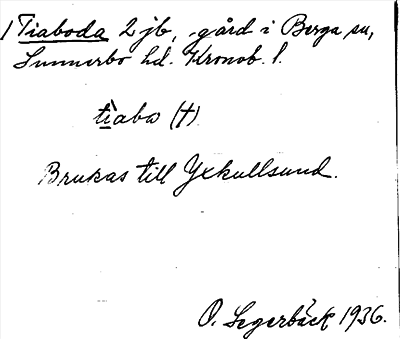 1 Tiaboda 2 jb, gård i Berga sn,
Sunnerbo hd. Kronob. l.
tìabo (†)
Brukas till Yxkullsund.
O. Segerbäck 1936.